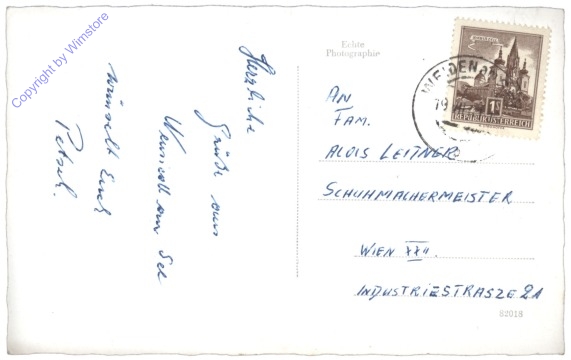 Copyright by Wimstore
Herzliche
Grüße vom
am See
wünscht Euch
Echte
Photographie
WEIDEN
19
1S
REPUBLIK ÖSTERREICH
AN
FAM.
ALOIS LEITNER
SCHUHMACHERMEISTER
WIEN XXII.
INDUSTRIESTRASZE 21
82018